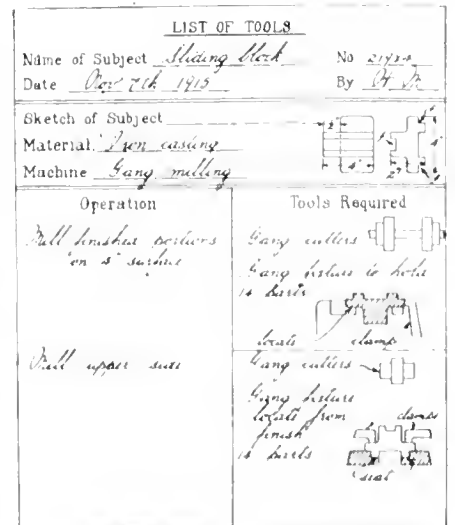 LIST OF TOOLS
Name of Subject Sliding block No 21924
Date Nov 7th 1915 By
Sketch of Subject
Material. Iron casting
Machine Gang milling
2"
4"
4"
2"
Operation
Tools Required
Mill finished portions
on surface
Gang cutters
Gang fixture to hold
14 parts
locate clamp
Mill upper
Gang cutters
Gang fixture
locate from clamps
finish
14 parts